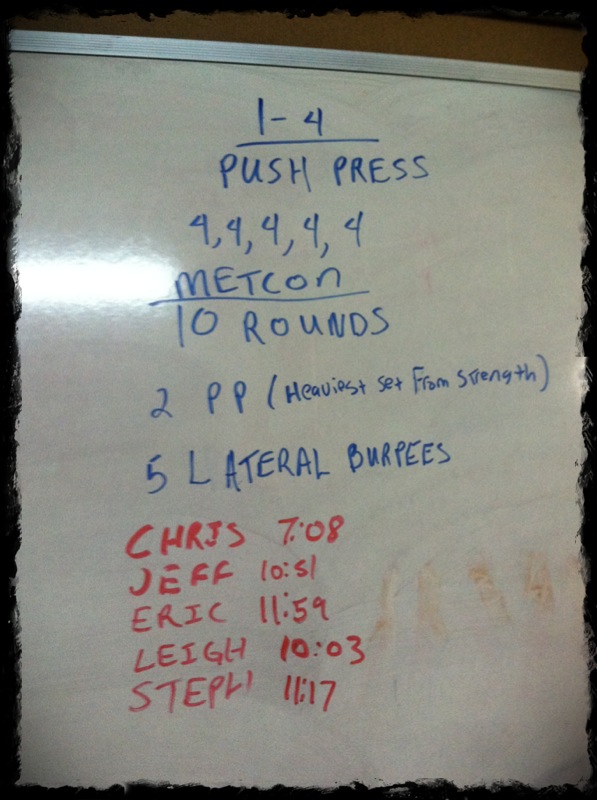 1-4
PUSH PRESS
4,4,4,4,4
METCON
10 ROUNDS
2 PP (Heaviest Set From Strength)
5 LATERAL BURPEES
CHRIS 7:08
JEFF 10:51
ERIC 11:59
LEIGH 10:03
STEPH 11:17